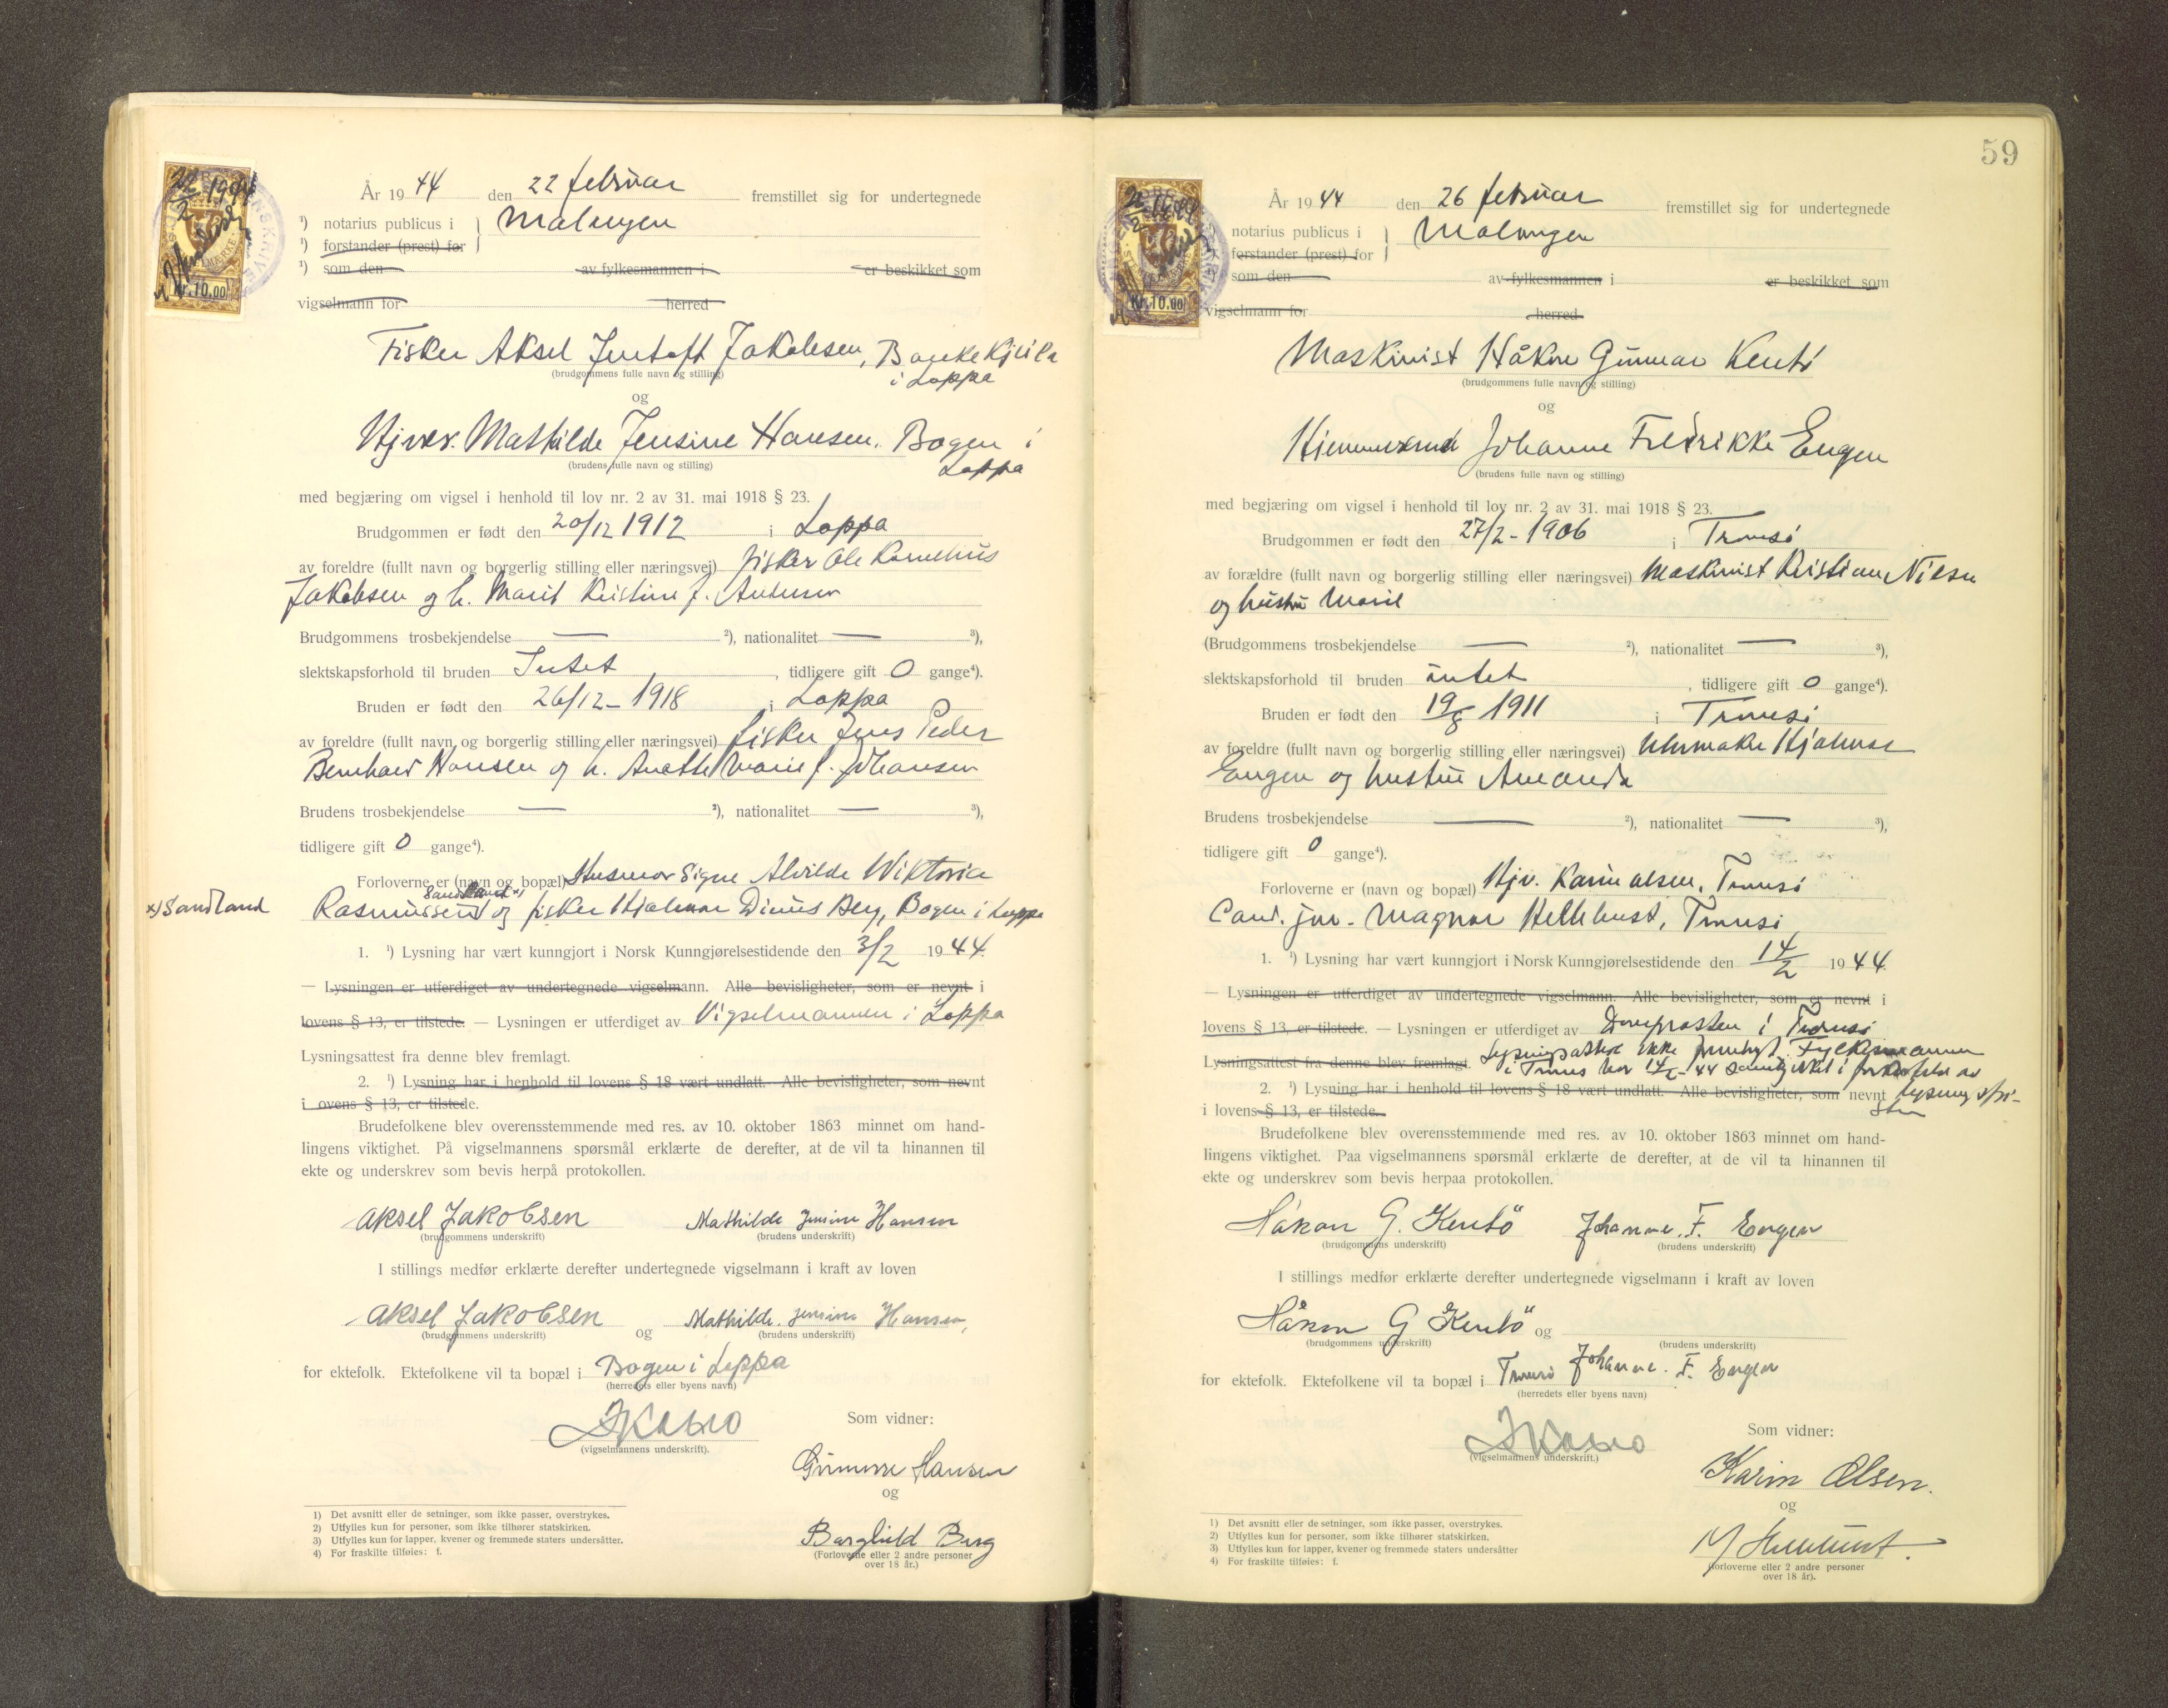 År 1944 den 22 februar fremstillet sig for undertegnede
¹) notarius publicus i Malangen
¹) forstander (prest) for
¹) som den av fylkesmannen i er beskikket som
vigselmann for herred
Fisker Aksel Jentoft Jakobsen,
i Loppa
(brudgommens fulle navn og stilling)
og
Hjvær. Mathilde Jensine Hansen. Bogen i
Loppa
(brudens fulle navn og stilling)
med begjæring om vigsel i henhold til lov nr. 2 av 31. mai 1918 § 23.
Brudgommen er født den 20/12 1912 i Loppa
av foreldre (fullt navn og borgerlig stilling eller næringsvei) fisker Ole Kornelius
Jakobsen og h. Marit Kristine f. Andersen
Brudgommens trosbekjendelse — ²), nationalitet — ³),
slektskapsforhold til bruden Intet, tidligere gift 0 gange⁴).
Bruden er født den 26/12 - 1918 i Loppa
av foreldre (fullt navn og borgerlig stilling eller næringsvei) fisker Jens Peder
Bernhard Hansen og h. Anette Marie f. Johansen
Brudens trosbekjendelse — ²), nationalitet — ³),
tidligere gift 0 gange⁴).
Forloverne er (navn og bopæl) Husmor Signe Alvilde Wiktoria
x) Sandland Rasmussen og fisker Hjalmar Dinus Berg, Bogen i Loppa
1. ¹) Lysning har vært kunngjort i Norsk Kunngjørelsestidende den 3/2 1944.
— Lysningen er utferdiget av undertegnede vigselmann. Alle bevisligheter, som er nevnt i
lovens § 13, er tilstede. — Lysningen er utferdiget av Vigselmannen i Loppa
Lysningsattest fra denne blev fremlagt.
2. ¹) Lysning har i henhold til lovens § 18 vært undlatt. Alle bevisligheter, som nevnt
i ovens § 13, er tilstede.
Brudefolkene blev overensstemmende med res. av 10. oktober 1863 minnet om hand-
lingens viktighet. På vigselmannens spørsmål erklærte de derefter, at de vil ta hinannen til
ekte og underskrev som bevis herpå protokollen.
Aksel Jakobsen Mathilde Jensine Hansen
(brudgommens underskrift) (brudens underskrift)
I stillings medfør erklærte derefter undertegnede vigselmann i kraft av loven
Aksel Jakobsen og Mathilde. Jensine Hansen,
(brudgommens underskrift) (brudens underskrift)
for ektefolk. Ektefolkene vil ta bopæl i Bogen i Loppa
(herredets eller byens navn)
Som vidner:
(vigselmannens underskrift).
Hansen
og
Borghild Berg
(Forloverne eller 2 andre personer
over 18 år.)
1) Det avsnitt eller de setninger, som ikke passer, overstrykes.
2) Utfylles kun for personer, som ikke tilhører statskirken.
3) Utfylles kun for lapper, kvener og fremmede staters undersåtter.
4) For fraskilte tilføies: f.
59
År 1944 den 26 februar fremstillet sig for undertegnede
notarius publicus i Malangen
forstander (prest) for
som den av fylkesmannen i er beskikket som
vigselmann for herred
Maskinist Håkon Gunnar Kentö
(brudgommens fulle navn og stilling)
og
Hjemmeværende Johanne Fredrikke Engen
(brudens fulle navn og stilling)
med begjæring om vigsel i henhold til lov nr. 2 av 31. mai 1918 § 23.
Brudgommen er født den 27/2 - 1906 i Tromsö
av forældre (fullt navn og borgerlig stilling eller næringsvei) Maskinist Kristian Nilsen
og hustru Marie
(Brudgommens trosbekjendelse — ²), nationalitet — ³),
slektskapsforhold til bruden intet, tidligere gift 0 gange⁴).
Bruden er født den 19/8 1911 i Tromsö
av foreldre (fullt navn og borgerlig stilling eller næringsvei) Uhrmaker Hjalmar
Engen og hustru Amanda
Brudens trosbekjendelse — ²), nationalitet — ³),
tidligere gift 0 gange⁴).
Forloverne er (navn og bopæl) Hjv. Karin Olsen, Tromsö
Cand. jur. Magnar Tromsö
1. ¹) Lysning har vært kunngjort i Norsk Kunngjørelsestidende den 14/2 1944.
— Lysningen er utferdiget av undertegnede vigselmann. Alle bevisligheter, som er nevnt i
lovens § 13, er tilstede. — Lysningen er utferdiget av Domprosten i Tromsö
Lysningsattest fra denne blev fremlagt. Lysningsattest ikke fremlagt. Fylkesmannen
i Troms har 14/2-44 samtykket i av
2. ¹) Lysning har i henhold til lovens § 18 vært undlatt. Alle bevisligheter, som nevnt lysnings fri-
i lovens § 13, er tilstede. sten
Brudefolkene blev overensstemmende med res. av 10. oktober 1863 minnet om hand-
lingens viktighet. Paa vigselmannens spørsmål erklærte de derefter, at de vil ta hinannen til
ekte og underskrev som bevis herpaa protokollen.
Håkon G. Kentö Johanne. F. Engen
(brudgommens underskrift) (brudens underskrift)
I stillings medfør erklærte derefter undertegnede vigselmann i kraft av loven
Håkon G Kentö og
(brudgommens underskrift) (brudens underskrift)
for ektefolk. Ektefolkene vil ta bopæl i Tromsö Johanne. F. Engen
(herredets eller byens navn)
Som vidner:
(vigselmannens underskrift.)
Karin Olsen.
og
(forloverne eller 2 andre personer
over 18 år).
1) Det avsnitt eller de setninger, som ikke passer, overstrykes.
2) Utfylles kun for personer, som ikke tilhører statskirken.
3) Utfylles kun for lapper, kvener og fremmede staters undersåtter
4) For fraskilte tilføies: f.